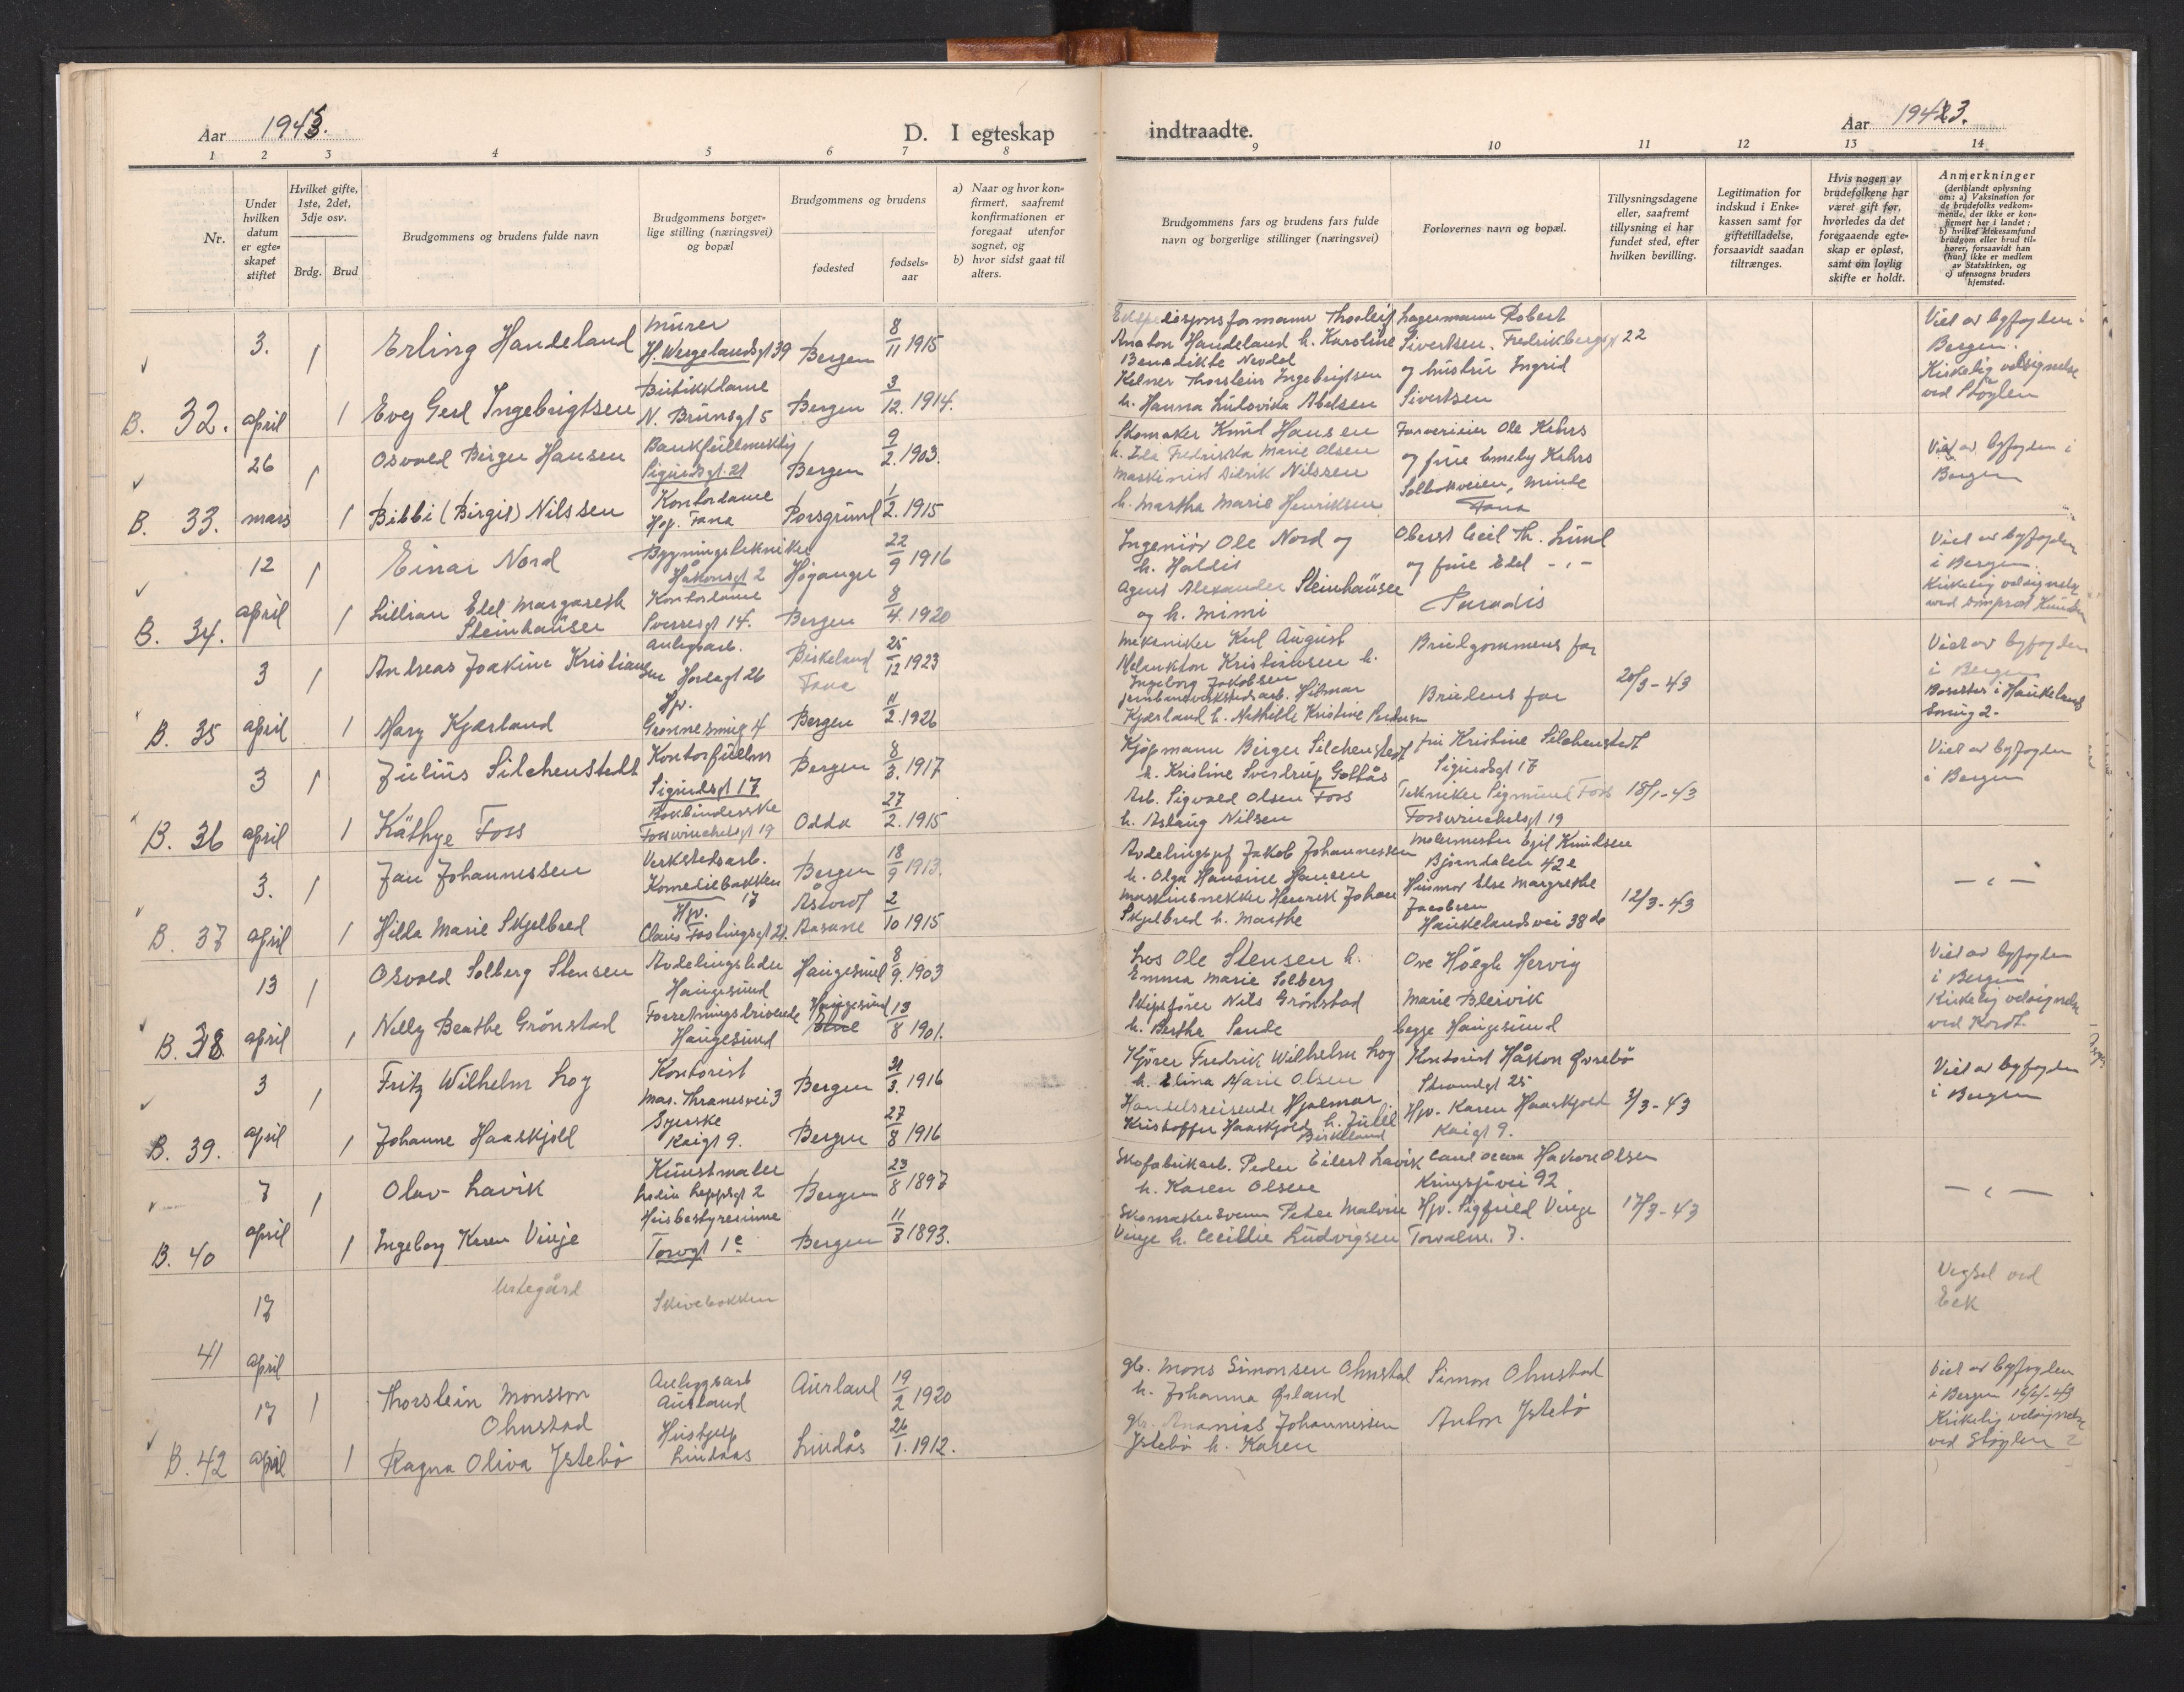 Aar 1943.
D. I egteskap
indtraadte.
Aar 1943.
1 2 3 4 5 6 7 8
9 10 11 12 13 14
Nr.
Under hvilken datum er egteskapet stiftet
Hvilket gifte, 1ste, 2det, 3dje osv.
Brdg. Brud
Brudgommens og brudens fulde navn
Brudgommens borgerlige stilling (næringsvei) og bopæl
Brudgommens og brudens
fødested
fødselsaar
a) Naar og hvor konfirmert, saafremt konfirmationen er foregaat utenfor sognet, og
b) hvor sidst gaat til alters.
Brudgommens fars og brudens fars fulde navn og borgerlige stillinger (næringsvei)
Forlovernes navn og bopæl.
Tillysningsdagene eller, saafremt tillysning ei har fundet sted, efter hvilken bevilling.
Legitimation for indskud i Enkekassen samt for giftetilladelse, forsaavidt saadan tiltrænges.
Hvis nogen av brudefolkene har været gift før, hvorledes da det foregaaende egteskap er opløst, samt om lovlig skifte er holdt.
Anmerkninger
(deriblandt oplysning om: a) Vaksination for de brudefolks vedkommende, der ikke er konfirmert her i landet; b) hvilket kirkesamfund brudgom eller brud tilhører, forsaavidt han (hun) ikke er medlem av Statskirken, og c) utensogns bruders hjemsted.
B. 32. 3. april
1 Erling Handeland
Murer
H. Wergelandsgt 39
Bergen 8/11 1915
1 Evy Gerd Ingebrigtsen
Butikkdame
N. Brunsgt 5
Bergen 3/12. 1914.
Ekspedisjonsformann Thorleif
Anaton Handeland h. Karoline
Benedikte Nevdal
Kelner Thorstein Ingebrigtsen
h. Hanna Ludovika Abelsen
Lagermann Robert
Sivertsen. Fredrikbergsgt 22
og hustru Ingrid
Sivertsen
Viet av byfogden i
Bergen.
Kirkelig velsignelse
ved Støylen
B. 33. 26 mars
1 Osvald Birger Hansen
Bankfullmektig
Sigurdsgt 21
Bergen 9/2. 1903.
1 Bibbi (Birgit) Nilssen
Kontordame
Hop. Fana
Porsgrunn 1/2. 1915
Skomaker Knud Hansen
Fredrikka Marie Olsen
Maskinist Didrik Nilssen
h. Martha Marie Henriksen
Ole Kehrs
og frue Kehrs
Minde
Fana
Viet av byfogden i
Bergen
B. 34. 12 april
1 Einar Nord
Bygningstekniker
Håkonsgt 2
Høyanger 22/9 1916
1 Lillian Edel Margareth
Steinhaüser
Kontordame
Sverresgt 14.
Bergen 8/4. 1920
Ingeniør Ole Nord og
h. Haldis
Agent Alexander Steinhaüser
og h. Mimi
Oberst Cecil Th. Lund
og frue Edel - " -
Paradis
Viet av byfogden
i Bergen.
Kirkelig velsignelse
ved
B. 35 3 april
1 Andreas Joakim Kristiansen
Anleggsarb.
26
Birkeland
Fana 25/12 1923
1 Mary Kjærland
Hjv.
Grønnesmug 4
Bergen 11/2. 1926
Mekaniker Karl August
Kristiansen h.
Ingeborg Jakobsen
Hilmar
Kjærland h. Mathilde Kristine Pedersen
Brudgommens far
Brudens far
20/3-43
Viet av byfogden
i Bergen
Bosetter i Haukeland
B. 36 3 april
1 Julius Silchenstedt
Kontorfullm
Sigurdsgt 17
Bergen 8/3. 1917
1 Käthye Foss
Bokbinderske
Fosswinckelsgt 19
Odda 27/2. 1915
Kjøpmann Birger Silchenstedt
h. Kristine Sverdrup
Arb. Sigvald Olsen Foss
h. Aslaug Nilsen
fru Kristine Silchenstedt
Sigurdsgt 17
Tekniker Sigmund Foss
Fosswinckelsgt 19
18/1-43
Viet av byfogden
i Bergen
B. 37 3. april
1 Jan Johannessen
Verkstedsarb.
Komediebakken
17
Bergen 18/9 1913.
1 Hilda Marie Skjelbred
Hjv.
Claus Fastingsgt 21.
Åstvedt
Aasane 2/10 1915
Avdelingssjef Jakob Johannessen
h. Olga Hansine Hansen
Maskinsnekker Henrik Johan
Skjelbred h. Marthe
Malermester Egil Knudsen
Bjørndalen 42e
Husmor Else Margrethe
Jacobsen
Haukelandsvei 38 do
12/3-43
- " -
B. 38. 13 april
1 Osvald Solberg Stensen
Avdelingsleder
Haugesund
Haugesund 8/9. 1903
1 Nelly Beathe Grønstad
Forretningsdrivende
Haugesund
Haugesund 13/8 1901.
Los Ole Stensen h.
Emma Marie Solberg
Skipsfører Nils Grønstad
h. Bertha Sande
Ove Høegh Hervig
Marie Bleivik
begge Haugesund
Viet av byfogden
i Bergen
Kirkelig velsignelse
ved Kordt.
B. 39. 3 april
1 Fritz Wilhelm Loy
Kontorist
Mar. Thranesvei 3
Bergen 31/3. 1916
1 Johanne Haaskjold
Syerske
Kaigt 9.
Bergen 27/8 1916
Kjører Fredrik Wilhelm Loy
h. Elina Marie Olsen
Handelsreisende Hjalmar
Kristoffer Haaskjold h. Julie
Birkeland
Kontorist Håkon Øvrebø
Strandgt 25
Hjv. Karen Haaskjold
Kaigt 9.
3/3-43
Viet av byfogden
i Bergen
B. 40 7 april
1 Olav Lavik
Kunstmaler
Lodin Leppsgt 2
Bergen 23/8 1897
1 Ingeborg Karen Vinje
Husbestyrerinne
Torvgt 1c
Bergen 11/7 1893.
Skofabrikarb. Peder Eilert Lavik
h. Karen Olsen
Skomakersvenn Peter Malvin
Vinje h. Cecillie Ludvigsen
Cand oecon Haakon Olsen
Kringsjåvei 92
Hjv. Sigfrid Vinje
Torvalm. 7.
17/3-43
- " -
41 17 april
Ustegård
Skivebakken
Vigsel ved
Eek
B. 42 17 april
1 Thorstein Monsson
Ohnstad
Anleggsarb
Aurland
Aurland 19/2 1920
1 Ragna Oliva Ystebø
Hushjelp
Lindaas
Lindås 26/1. 1912.
gb. Mons Simonsen Ohnstad
h. Johanna Øsland
gb. Ananias Johannessen
Ystebø h. Karen
Simon Ohnstad
Anton Ystebø
Viet av byfogden
i Bergen 16/4-43
Kirkelig velsignelse
ved Støylen